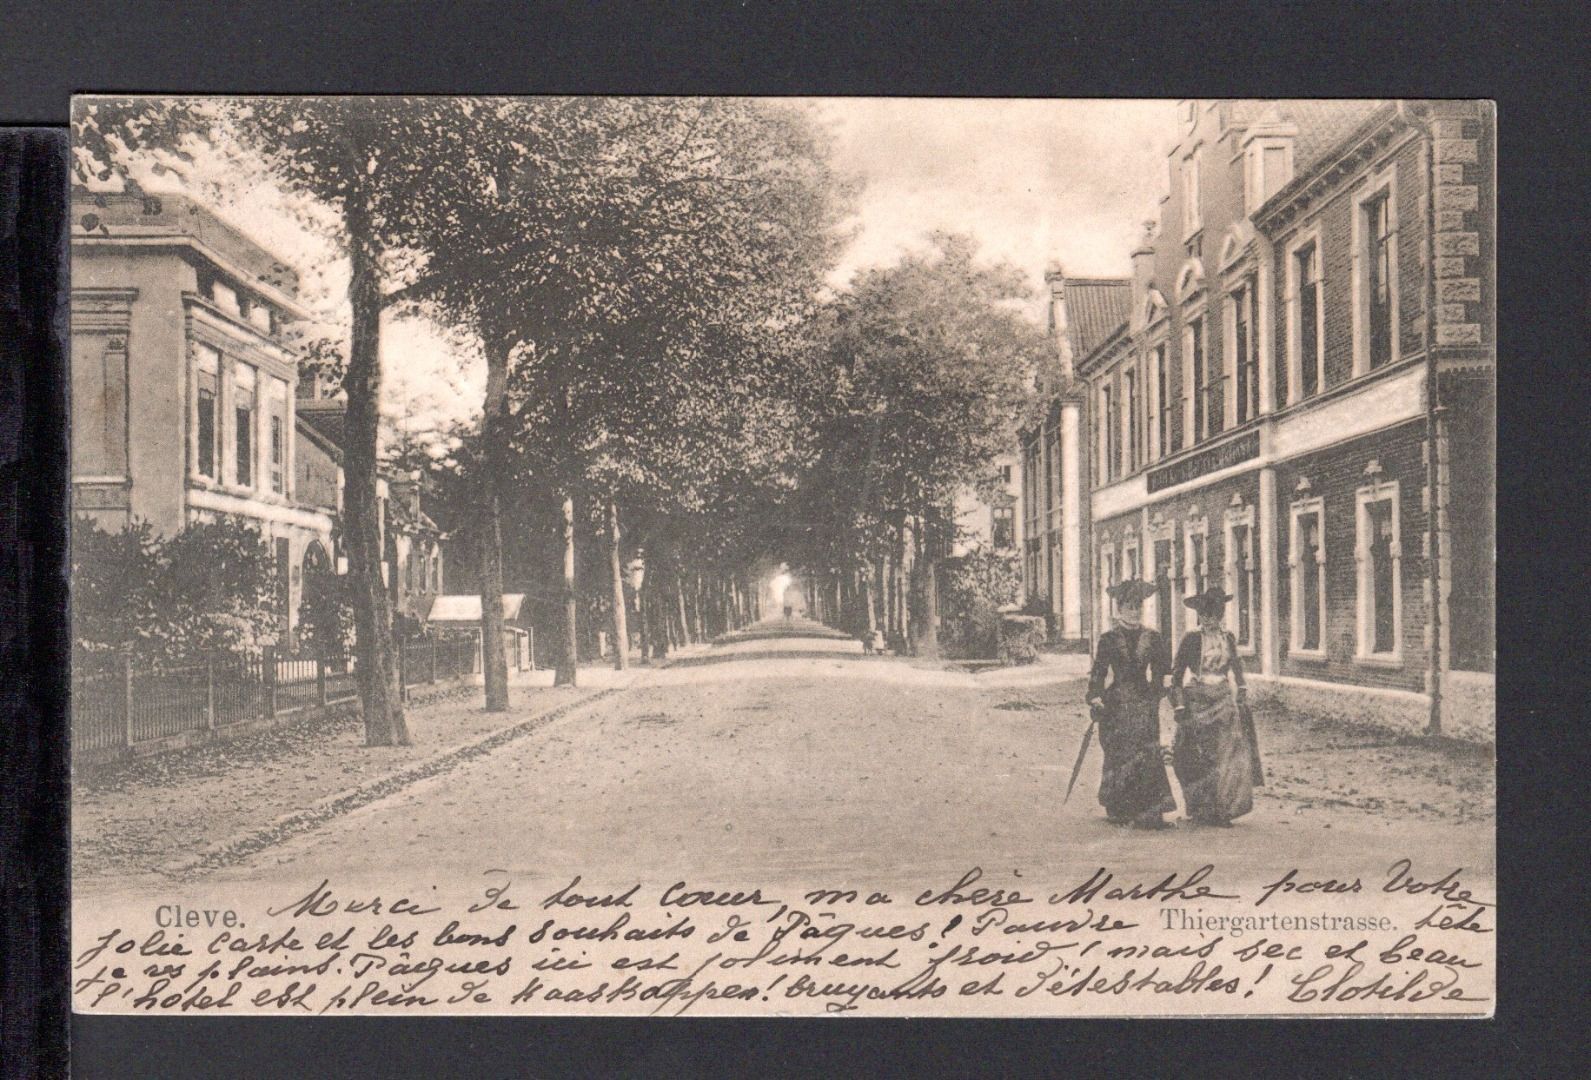 Cleve. Merci de tout cœur, ma chère Marthe pour Votre
jolie carte et les bons souhaits de Pâques! Pauvre Thiergartenstrasse. tête
je vs plains. Pâques ici est joliment froid! mais sec et beau
l'hôtel est plein de Kaaskoppen! bruyants et détestables! Clotilde